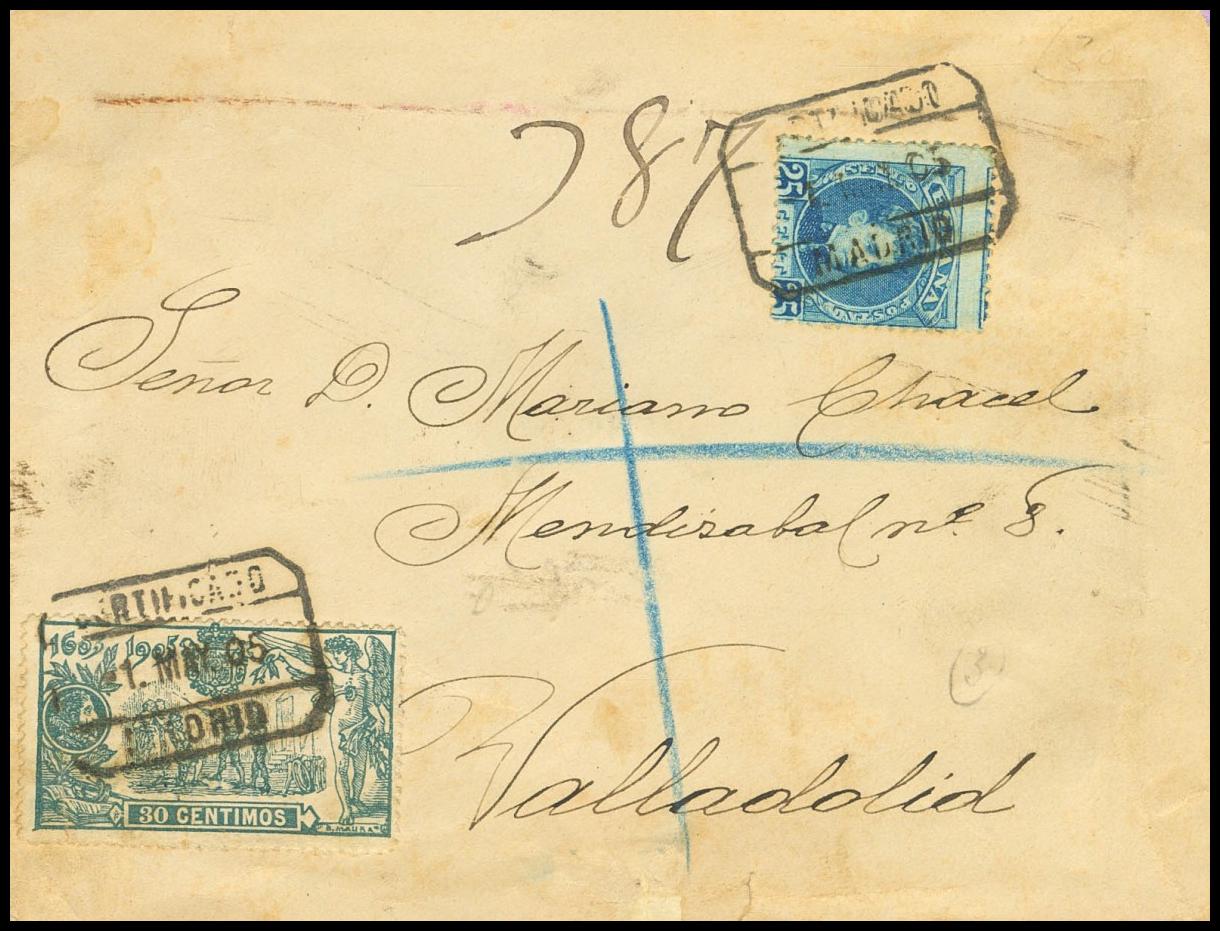 (30
787
CERTIFICADO
05
MADRID
25 25
CENT
SELLO
ESPAÑA
POSTAL
Señor D. Mariano Chacel
Mendizabal nº 8.
Valladolid
(3)
CERTIFICADO
1. MAY. 05
MADRID
1605 1905
30 CENTIMOS
B. MAURA